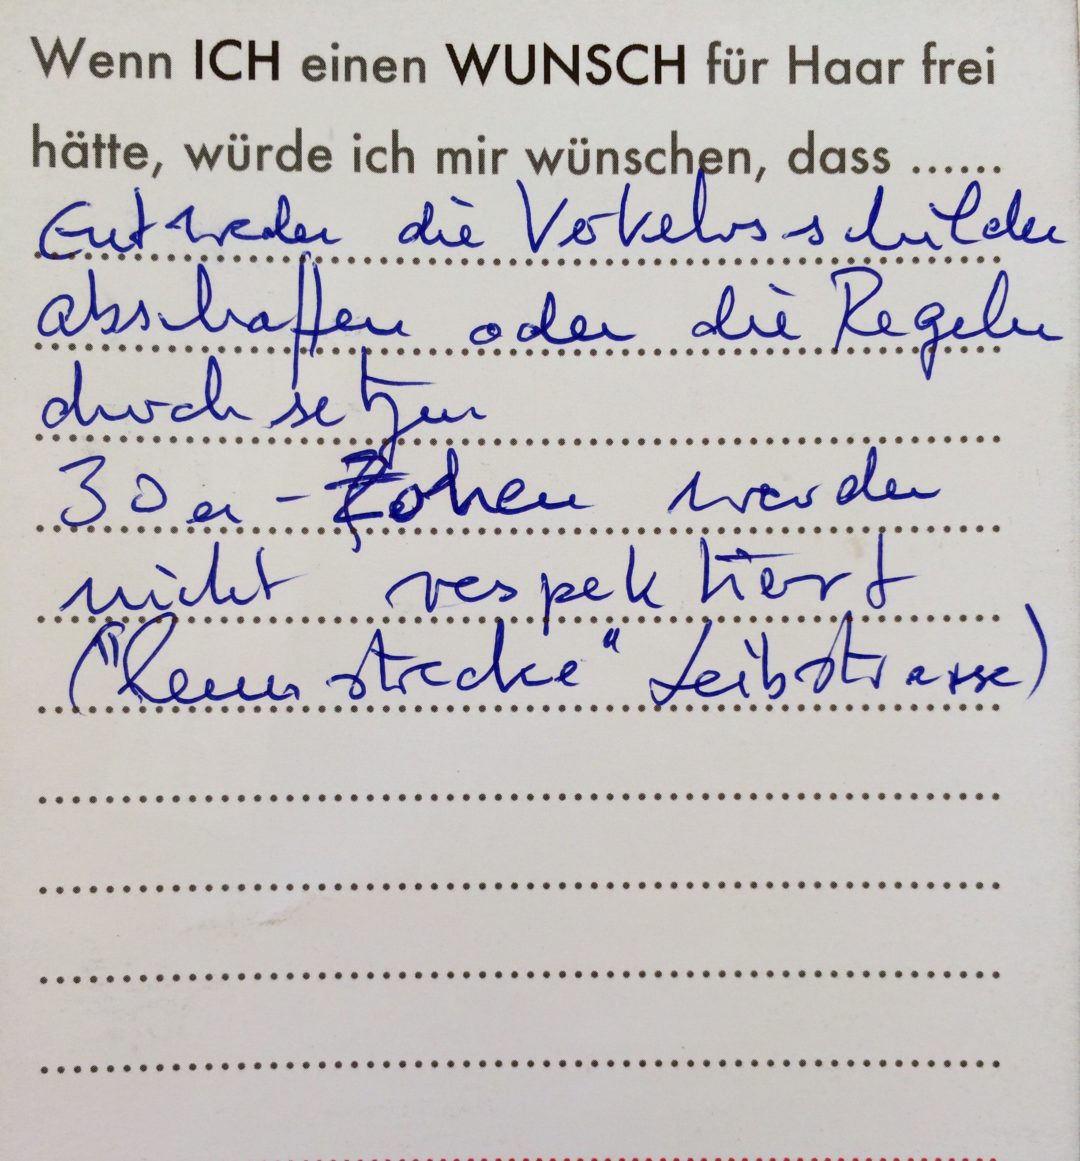 Wenn ICH einen WUNSCH für Haar frei
hätte, würde ich mir wünschen, dass ......
Entweder die Verkehrsschilder
abschaffen oder die Regeln
durchsetzen
30er-Zonen werden
nicht respektiert
("Rennstrecke" Leibstrasse)